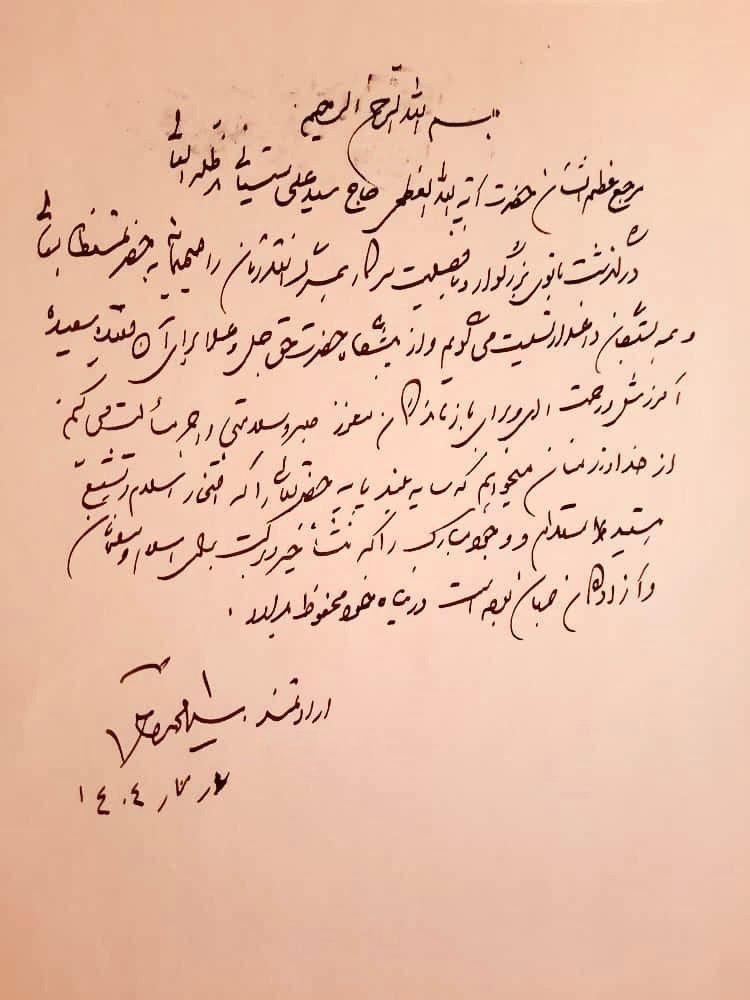 بسم الله الرحمن الرحیم
مرجع عظیم الشأن حضرت آیه الله العظمی حاج سید علی سیستانی مد ظله العالی
درگذشت بانوی بزرگوار و بافضیلت سرکار همسر گرانقدرتان را صمیمانه به حضرت مستطاب عالی
و همه بستگان داغدار تسلیت می گویم و از پیشگاه حضرت حق جل و علا برای آن فقیده سعیده
آمرزش و رحمت الهی و برای بازماندگان معزز صبر و سلامتی و اجر مسألت می کنم
از خداوند منان میخواهم که سایه بلند پایه حضرتعالی را که افتخار اسلام و تشیع
هستید مستدام و وجود مبارک را که منشأ خیر و برکت برای اسلام و مسلمانان
و آزادگان جهان بوده است در پناه خود محفوظ بدارد .
ارادتمند سید محمد خاتمی
آذر ١٤٠٤